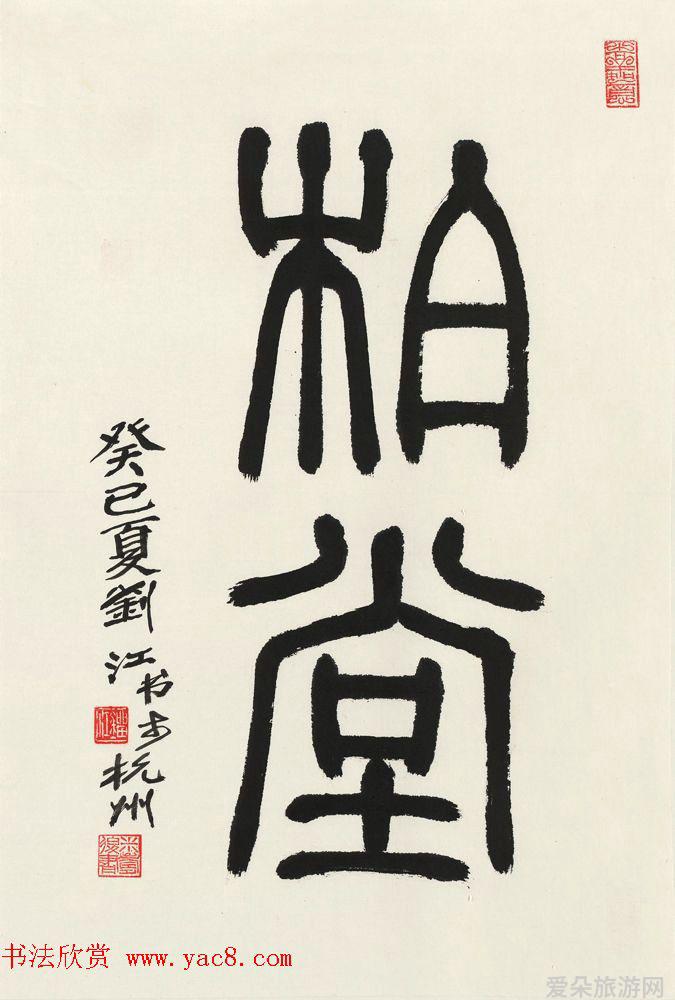 柏堂
癸巳夏劉江书于杭州
书法欣赏 www.yac8.com
爱朵旅游网